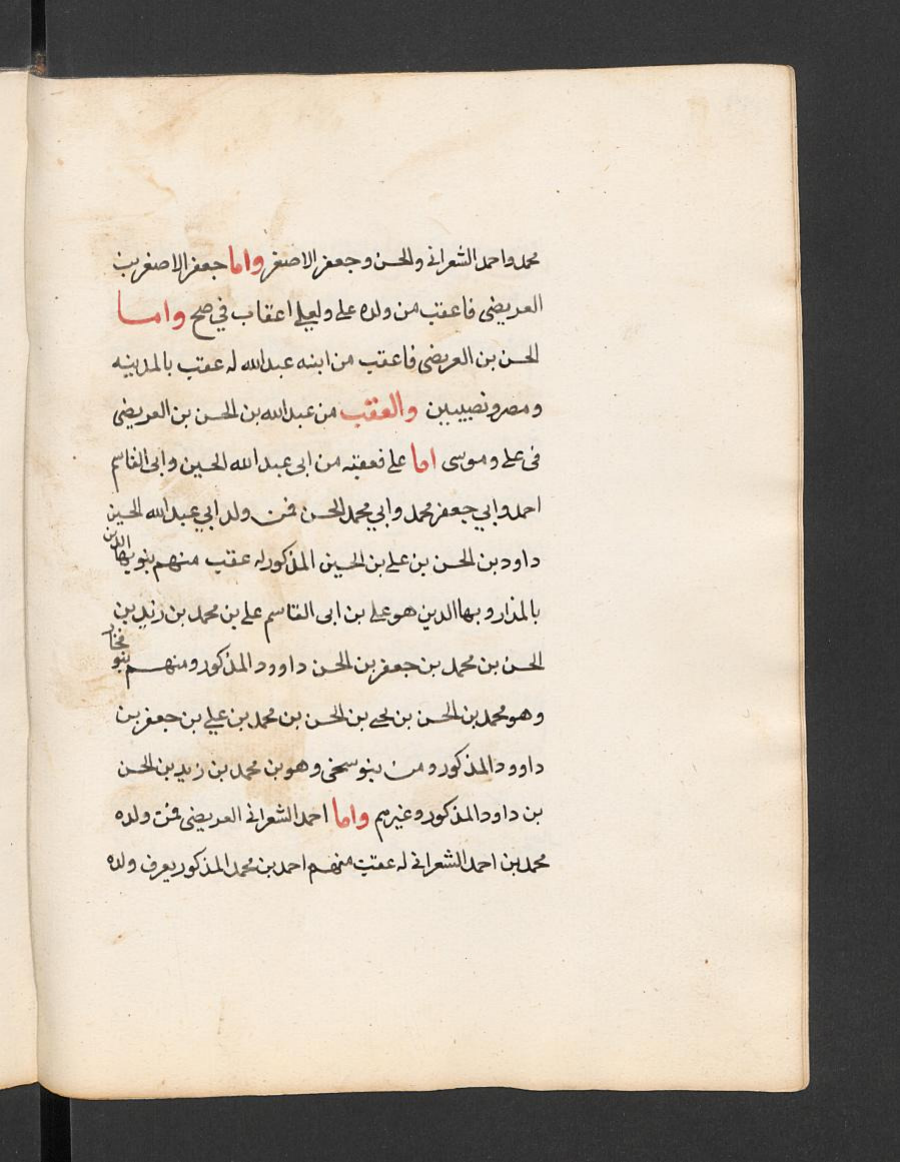 محمد واحمد الشعراني والحسن وجعفر الاصغر واما جعفر الاصغر بن
العريضى فاعقب من ولده على ولعلي اعقاب في صح واما
الحسن بن العريضى فاعقب من ابنه عبدالله له عقب بالمدينه
ومصر ونصيبين والعقب من عبدالله بن الحسن بن العريضى
فى على وموسى اما على فعقبه من ابى عبدالله الحسين وابى القاسم
احمد وابي جعفر محمد وابي محمد الحسن فمن ولد ابي عبدالله الحسين
داود بن الحسن بن على بن الحسين المذكور له عقب منهم بنو بها الدين
بالمذار وبها الدين هو على بن ابى القاسم على بن محمد بن زيد بن
الحسن بن محمد بن جعفر بن الحسن داوود المذكور ومنهم بنو فخار
وهو محمد بن الحسن بن يحى بن الحسن بن محمد بن علي بن جعفر بن
داوود المذكور ومن بنو وهو بن محمد بن زيد بن الحسن
بن داود المذكور وغيرهم واما احمد الشعرانى العريضى فمن ولده
محمد بن احمد الشعرانى له عقب منهم احمد بن محمد المذكور يعرف ولده